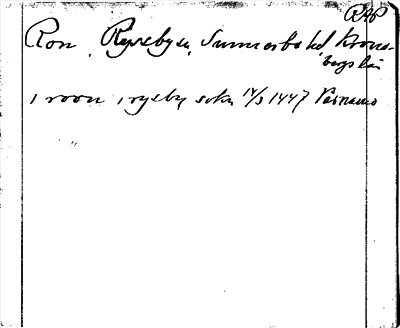 RAP
Ron, Ryssby sn, Sunnerbo hd, Krono-
bergs län
i roon i rysby sokn 14/3 1447 Värnamo